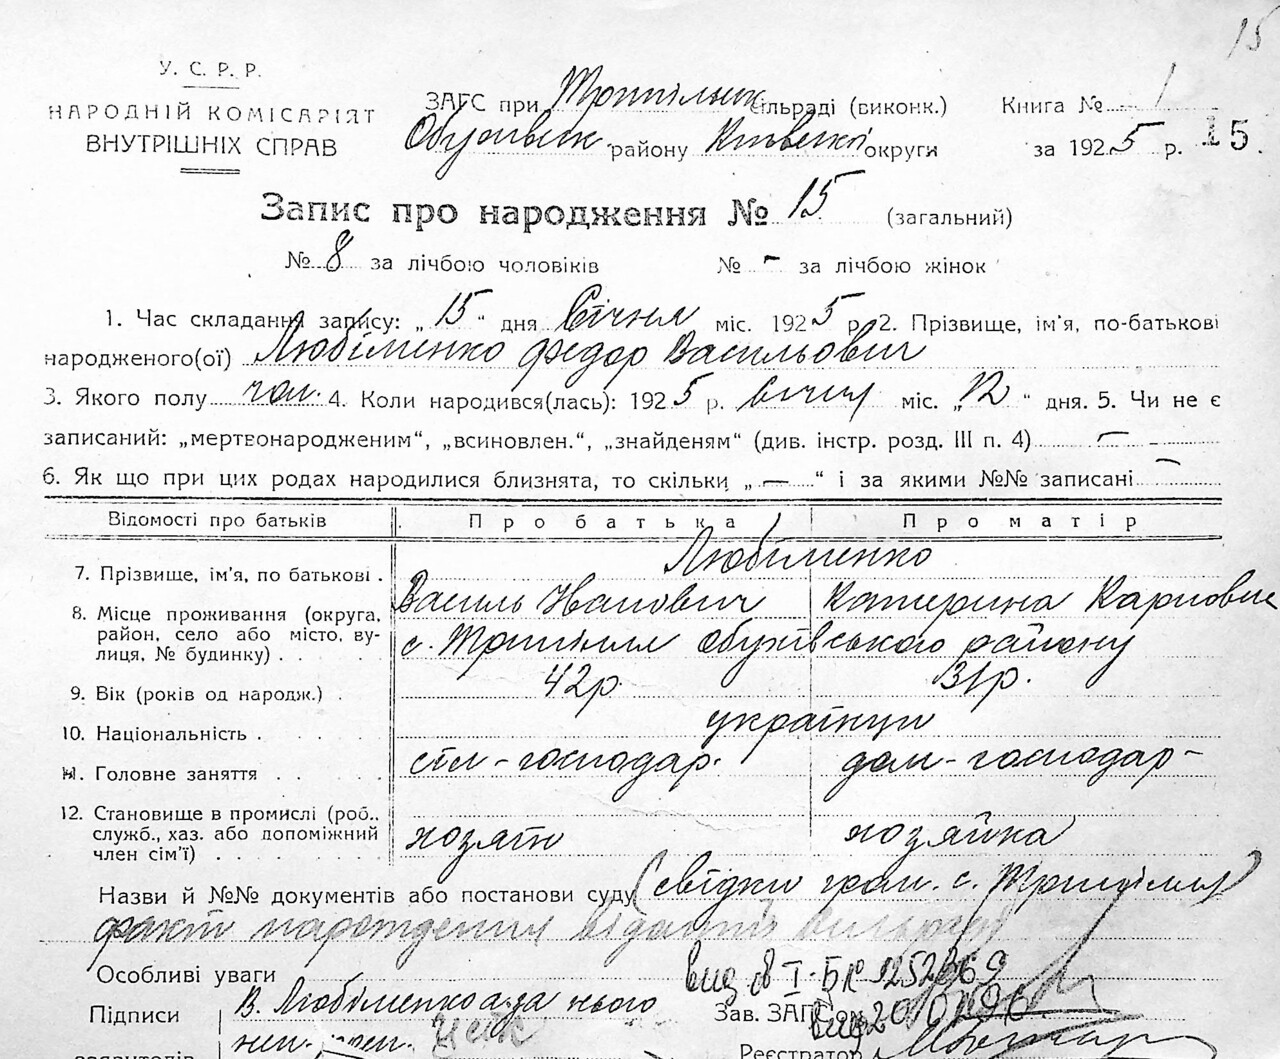 15
У. С. Р. Р.
НАРОДНІЙ КОМІСАРІЯТ
ВНУТРІШНІХ СПРАВ
ЗАГС при Трипільск сільраді (виконк.)
Книга № 1
Обухівськ. району Київської округи
за 1925 р. 15.
Запис про народження № 15 (загальний)
№ 8 за лічбою чоловіків № - за лічбою жінок
1. Час складання запису: „15“ дня Січня міс. 1925 р. 2. Прізвище, ім'я, по-батькові
народженого(ої) Любіменко Федор Васильович
3. Якого полу чол. 4. Коли народився(лась): 1925 р. Січня міс. „12“ дня. 5. Чи не є
записаний: „мертвонародженим“, „всиновлен.“, „знайденям“ (див. інстр. розд. III п. 4) —
6. Як що при цих родах народилися близнята, то скільки „—“ і за якими №№ записані —
Відомості про батьків Про батька Про матір
Любіменко
7. Прізвище, ім'я, по батькові . Василь Іванович Катерина Карповна
8. Місце проживання (округа, район, село або місто, вулиця, № будинку) . . с. Трипілля Обухівського району
9. Вік (років од народж.) . 42р. 31р.
10. Національність . . . . українци
11. Головне заняття . . . . сіл-господар. дом-господар-
12. Становище в промислі (роб., служб., хаз. або допоміжний член сім'ї) . . . . хозяін хозяйка
Назви й №№ документів або постанови суду (свідки гром. с. Трипілля)
факт народження
Особливі уваги
вид св I-БК 1252369
Підписи В. Любіменко а за нього
Зав. ЗАГСом
неп.
заявителів
Реєстратор